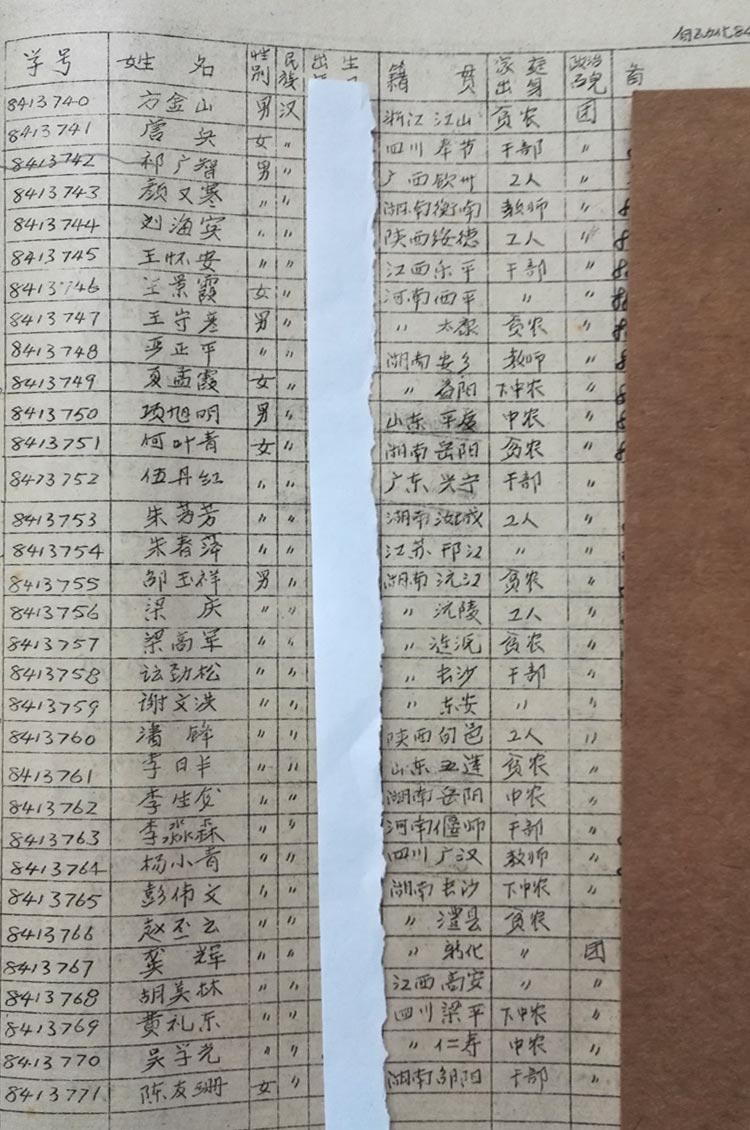 自动化84
学号 姓名 性别 民族 出生 籍贯 家庭出身 政治面儿 备
8413740 方金山 男 汉 浙江 江山 贫农 团
8413741 詹 女 〃 四川 奉节 干部 〃
8413742 祁广智 男 〃 广西 钦州 工人 〃
8413743 颜又寒 〃 〃 湖南 衡南 教师 〃
8413744 刘海滨 〃 〃 陕西 绥德 工人 〃
8413745 王怀安 〃 〃 江西 乐平 干部 〃
8413746 景霞 女 〃 河南 西平 〃 〃
8413747 王守基 男 〃 〃 太康 贫农 〃
8413748 严正平 〃 〃 湖南 安乡 教师 〃
8413749 夏孟霞 女 〃 〃 益阳 下中农 〃
8413750 项旭明 男 〃 山东 平度 中农 〃
8413751 何叶青 女 〃 湖南 岳阳 贫农 〃
8413752 伍丹红 〃 〃 广东 兴宁 干部 〃
8413753 朱芳芳 〃 〃 湖南 汝城 工人 〃
8413754 朱春萍 〃 〃 江苏 邗江 〃 〃
8413755 邹玉祥 男 〃 湖南 沅江 贫农 〃
8413756 梁庆 〃 〃 〃 沅陵 工人 〃
8413757 梁高军 〃 〃 〃 涟沅 贫农 〃
8413758 劲松 〃 〃 〃 长沙 干部 〃
8413759 谢文洪 〃 〃 〃 东安 〃 〃
8413760 潘锋 〃 〃 陕西 旬邑 工人 〃
8413761 李日丰 〃 〃 山东 五莲 贫农 〃
8413762 李生 〃 〃 湖南 岳阳 中农 〃
8413763 李淼森 〃 〃 河南 偃师 干部 〃
8413764 杨小青 〃 〃 四川 广汉 教师 〃
8413765 彭伟文 〃 〃 湖南 长沙 下中农 〃
8413766 赵丕云 〃 〃 〃 澧县 贫农
8413767 龚辉 〃 〃 〃 新化 〃 团
8413768 胡美林 〃 〃 江西 高安 〃 〃
8413769 黄礼东 〃 〃 四川 梁平 下中农 〃
8413770 吴学光 〃 〃 〃 仁寿 中农 〃
8413771 陈友珊 女 〃 湖南 邵阳 干部 〃